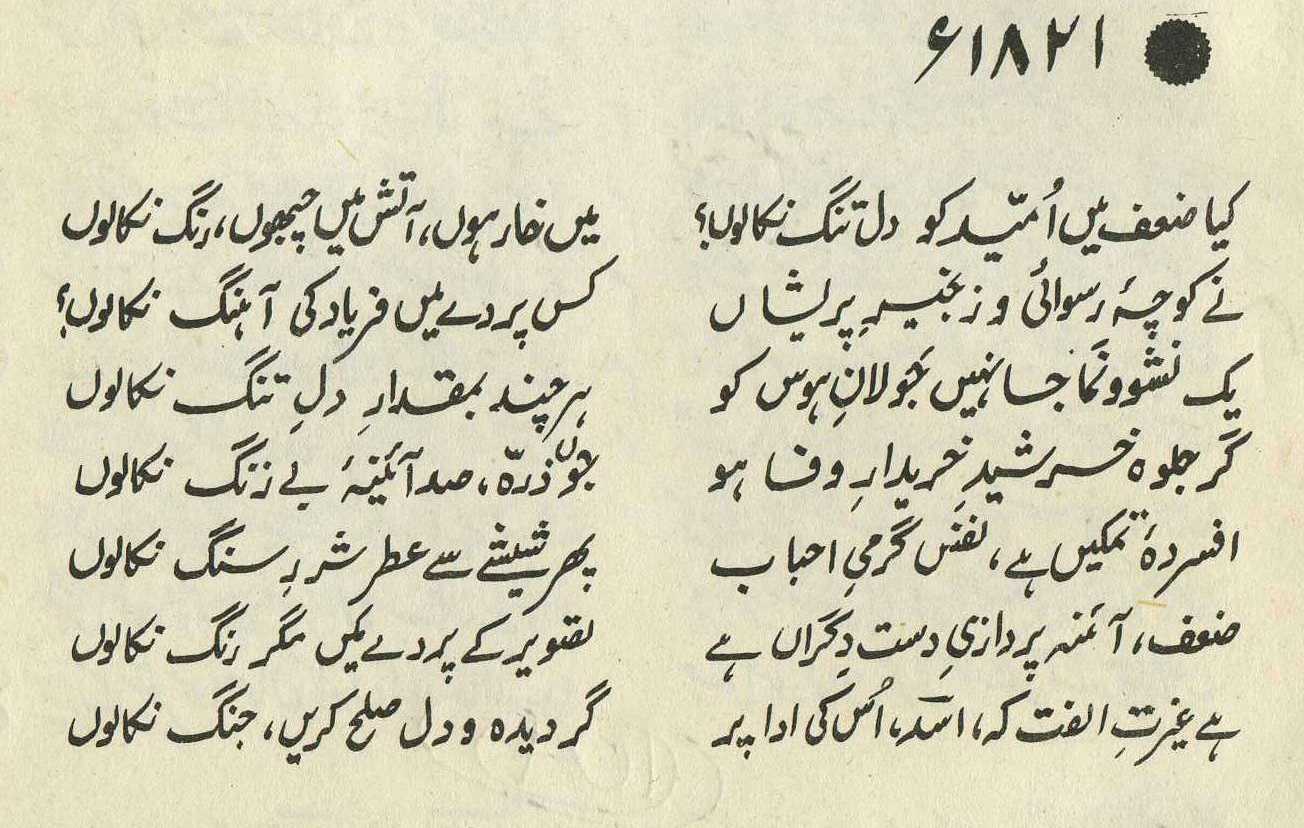 ۱۸۲۱ء
کیا ضعف میں اُمّید کو دل تنگ نکالوں؟ میں خار ہوں، آتش میں چبھوں، رنگ نکالوں
نے کوچۂ رسوائی و زنجیرِ پریشاں کس پردے میں فریاد کی آہنگ نکالوں؟
یک نشوونَما جا نہیں جَولانِ ہوس کو ہر چند بمقدارِ دلِ تنگ نکالوں
گر جلوہ خرشیدِ خریدارِ وفا ہو جوں ذرّہ، صد آئنیۂ بے زنگ نکالوں
افسردۂ تمکیں ہے، نفَس گرمیِ احباب پھر شیشے سے عطرِ شررِ سنگ نکالوں
ضعف، آئنہ پردازیِ دست دِگراں ہے تصویر کے پردے میں مگر رنگ نکالوں
ہے غیرتِ الفت کہ، اسؔد، اُس کی ادا پر گر دیدہ و دل صلح کریں، جنگ نکالوں